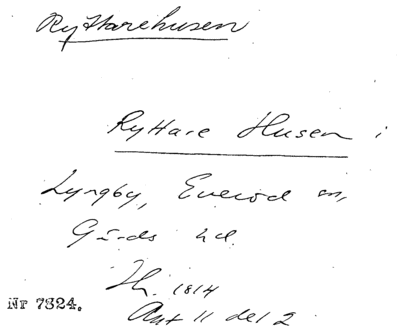 Ryttarehusen
Ryttare Husen i
Lyngby, Everöd sn,
Gärds hd.
Th. 1814
Ant 11 del 2
Nr 7324.